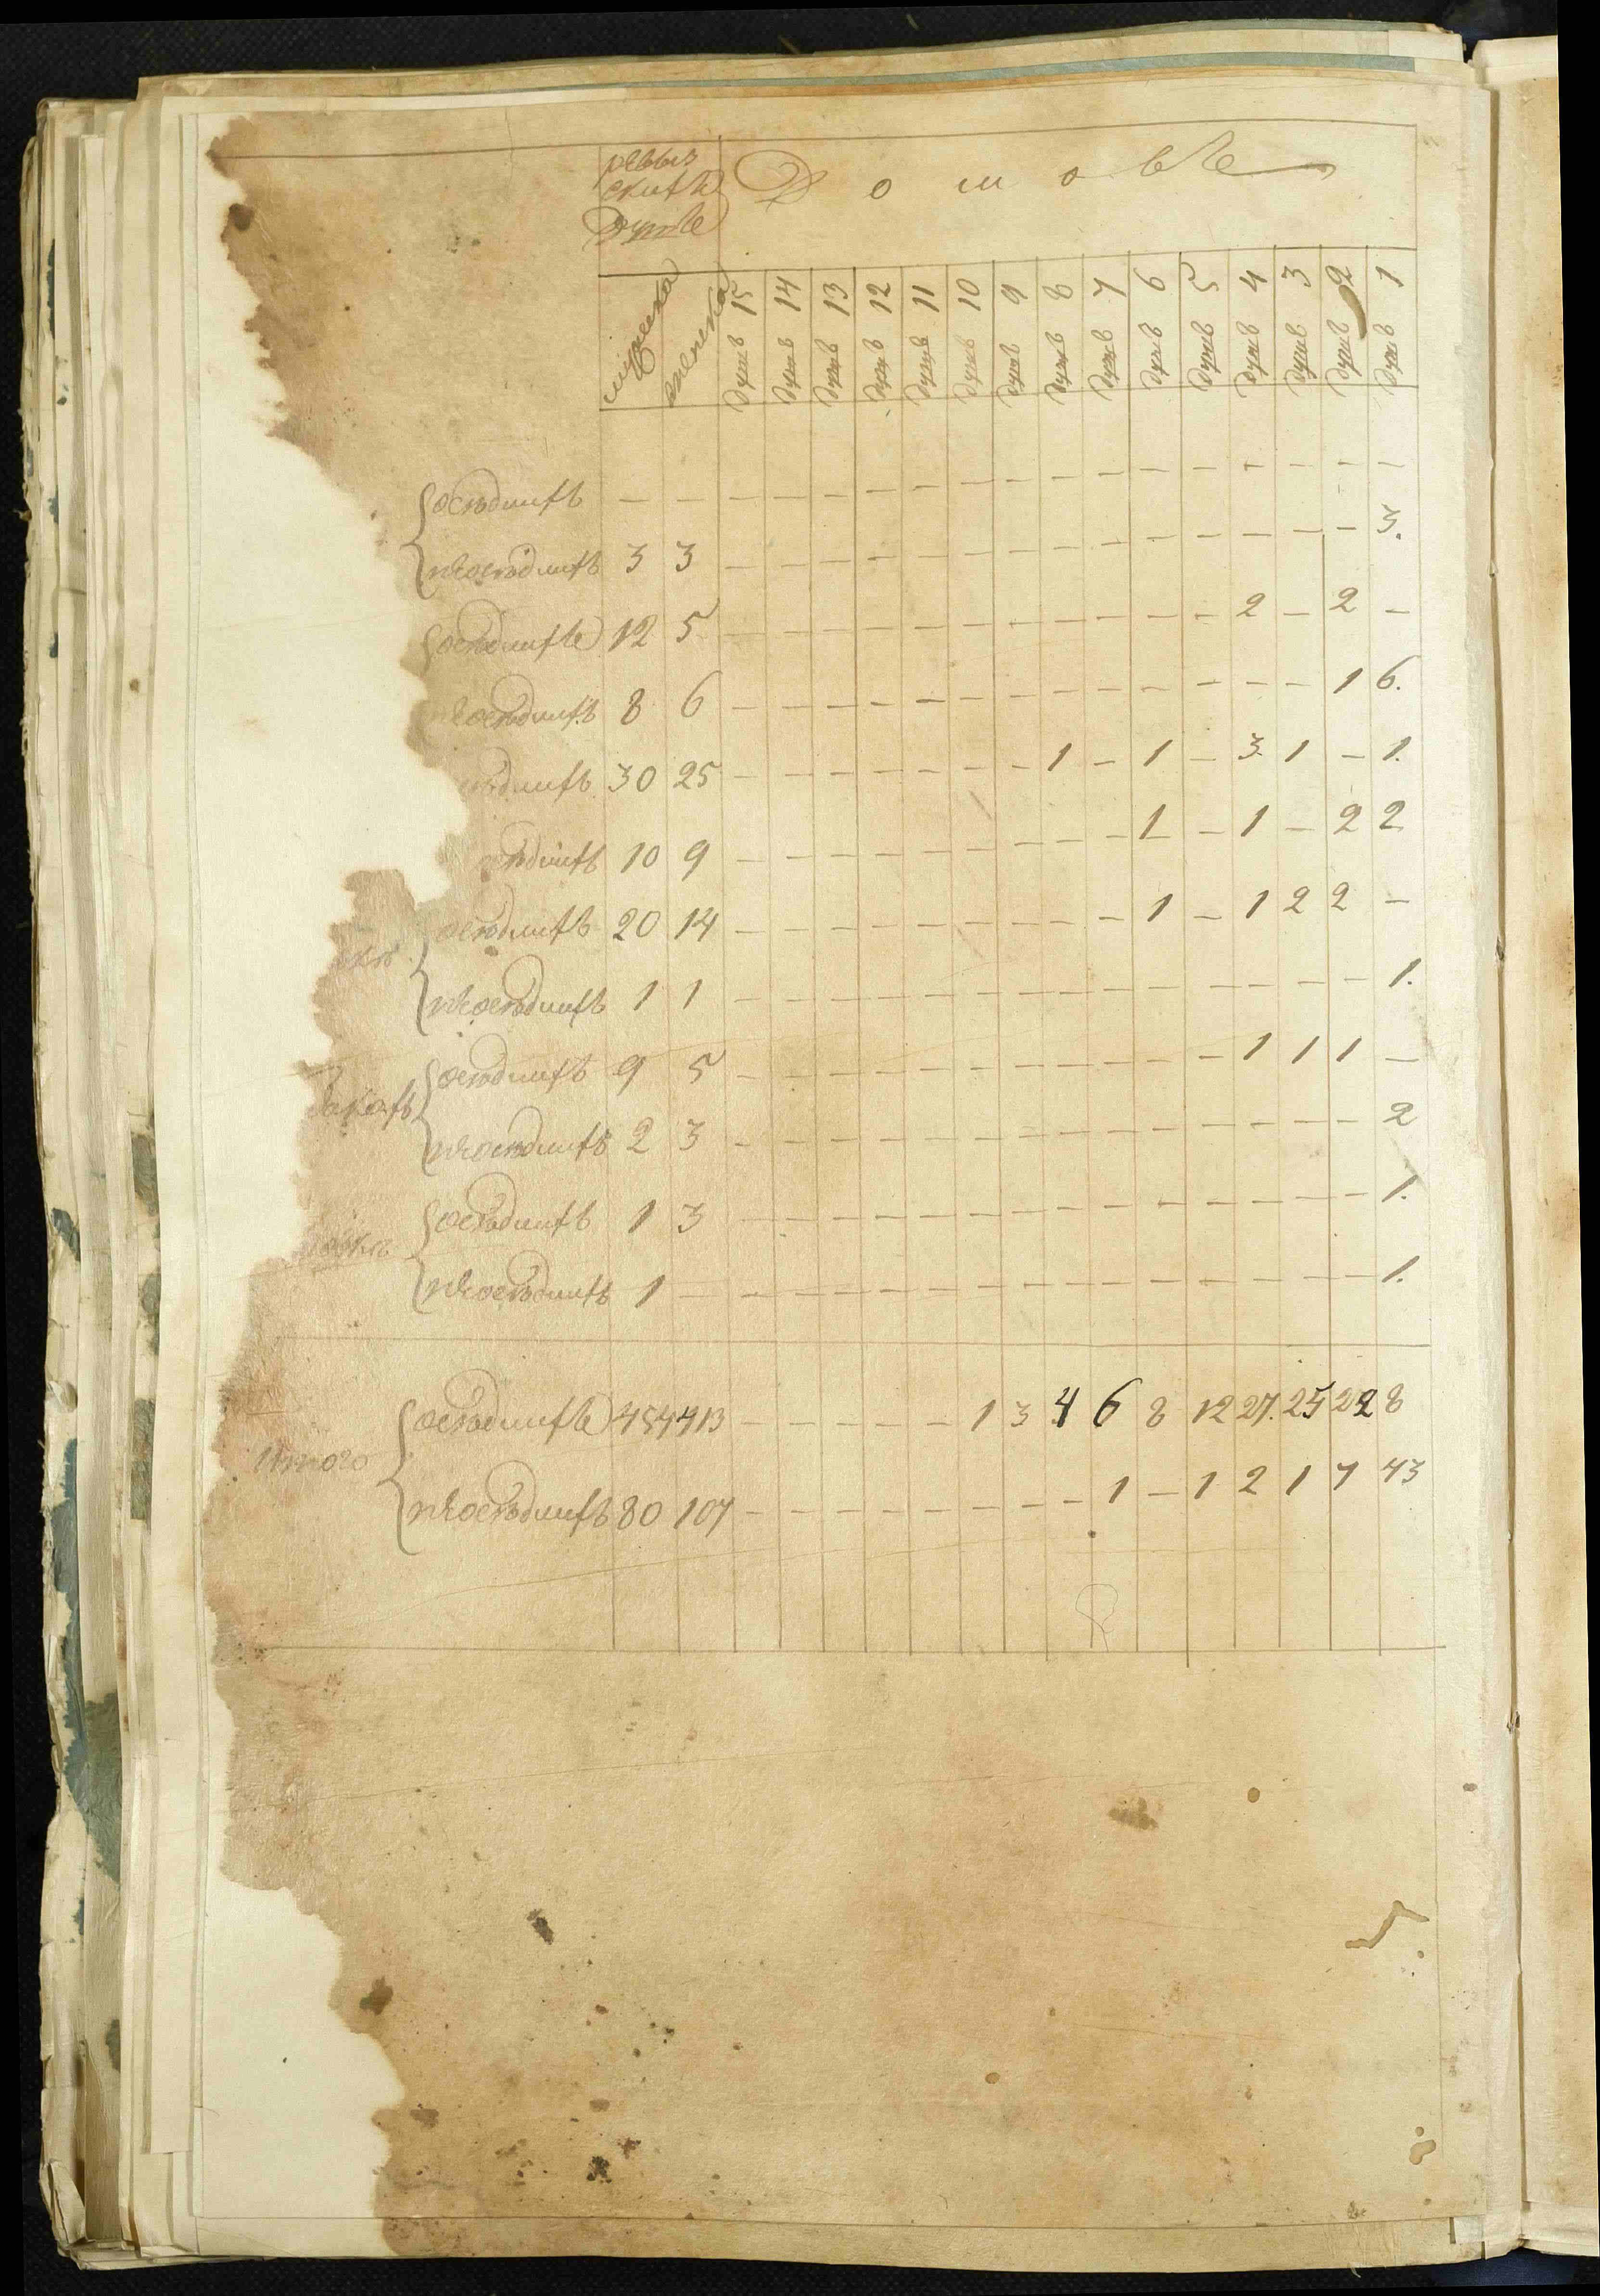 ревиз
скихъ
душъ
Домовъ
мужеска
женска
душъ 15
душъ 14
душъ 13
душъ 12
душъ 11
душъ 10
душъ 9
душъ 8
душъ 7
душъ 6
душъ 5
душъ 4
душъ 3
душъ 2
душъ 1
оседлыхъ — — — — — — — — — — — — — — — — —
неоседлыхъ 3 3 — — — — — — — — — — — — — — 3.
оседлыхъ 12 5 — — — — — — — — — — — 2 — 2 —
неоседлыхъ 8 6 — — — — — — — — — — — — — 1 6.
едлыхъ 30 25 — — — — — — — 1 — 1 — 3 1 — 1.
седлыхъ 10 9 — — — — — — — — — 1 — 1 — 2 2
оседлыхъ 20 14 — — — — — — — — — 1 — 1 2 2 —
неоседлыхъ 1 1 — — — — — — — — — — — — — — 1.
оседлыхъ 9 5 — — — — — — — — — — — 1 1 1 —
неоседлыхъ 2 3 — — — — — — — — — — — — — — 2
оседлыхъ 1 3 — — — — — — — — — — — — — — 1.
неоседлыхъ 1 — — — — — — — — — — — — — — — 1.
Итого
оседлыхъ 454 413 — — — — — 1 3 4 6 8 12 27. 25 22 8
неоседлыхъ 80 107 — — — — — — — — 1 — 1 2 1 7 43